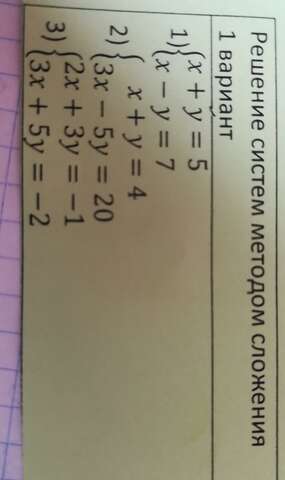 Решение систем методом сложения
1 вариант
1) { x + y = 5
x − y = 7
2) { x + y = 4
3x − 5y = 20
3) { 2x + 3y = −1
3x + 5y = −2